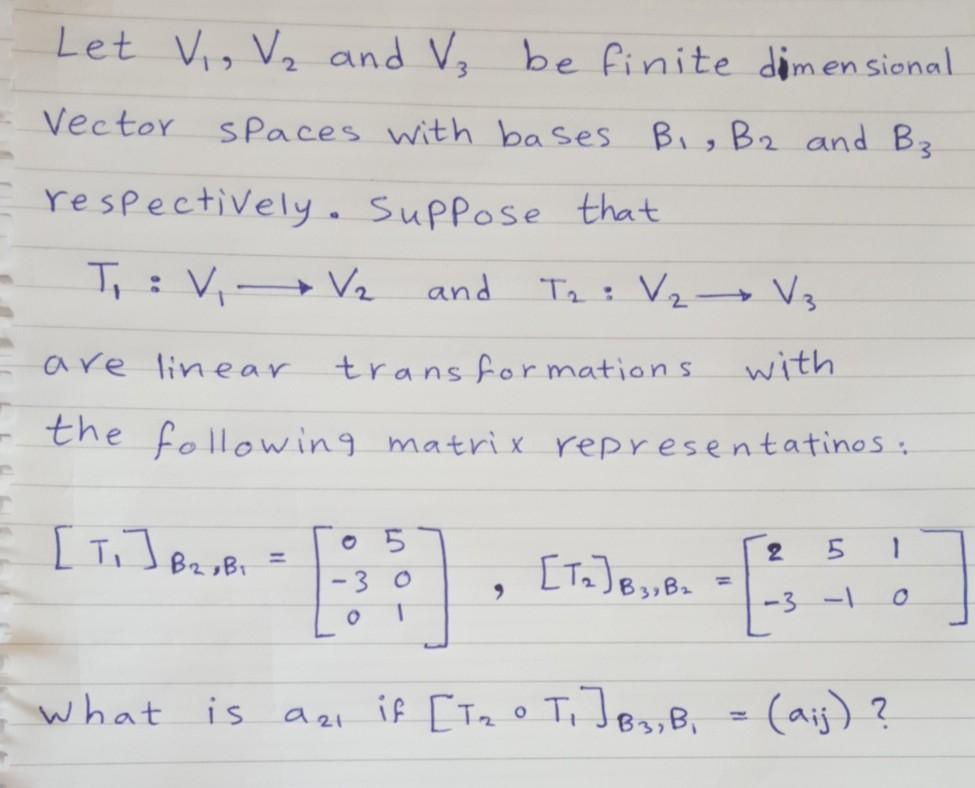 Let V₁, V₂ and V₃ be finite dimensional
Vector spaces with bases B₁, B₂ and B₃
respectively. Suppose that
T₁ : V₁ ⟶ V₂ and T₂ : V₂ ⟶ V₃
are linear transformations with
the following matrix representatinos:
[T₁]_{B₂,B₁} = [0 5; -3 0; 0 1] , [T₂]_{B₃,B₂} = [2 5 1; -3 -1 0]
What is a₂₁ if [T₂ ∘ T₁]_{B₃,B₁} = (aᵢⱼ) ?